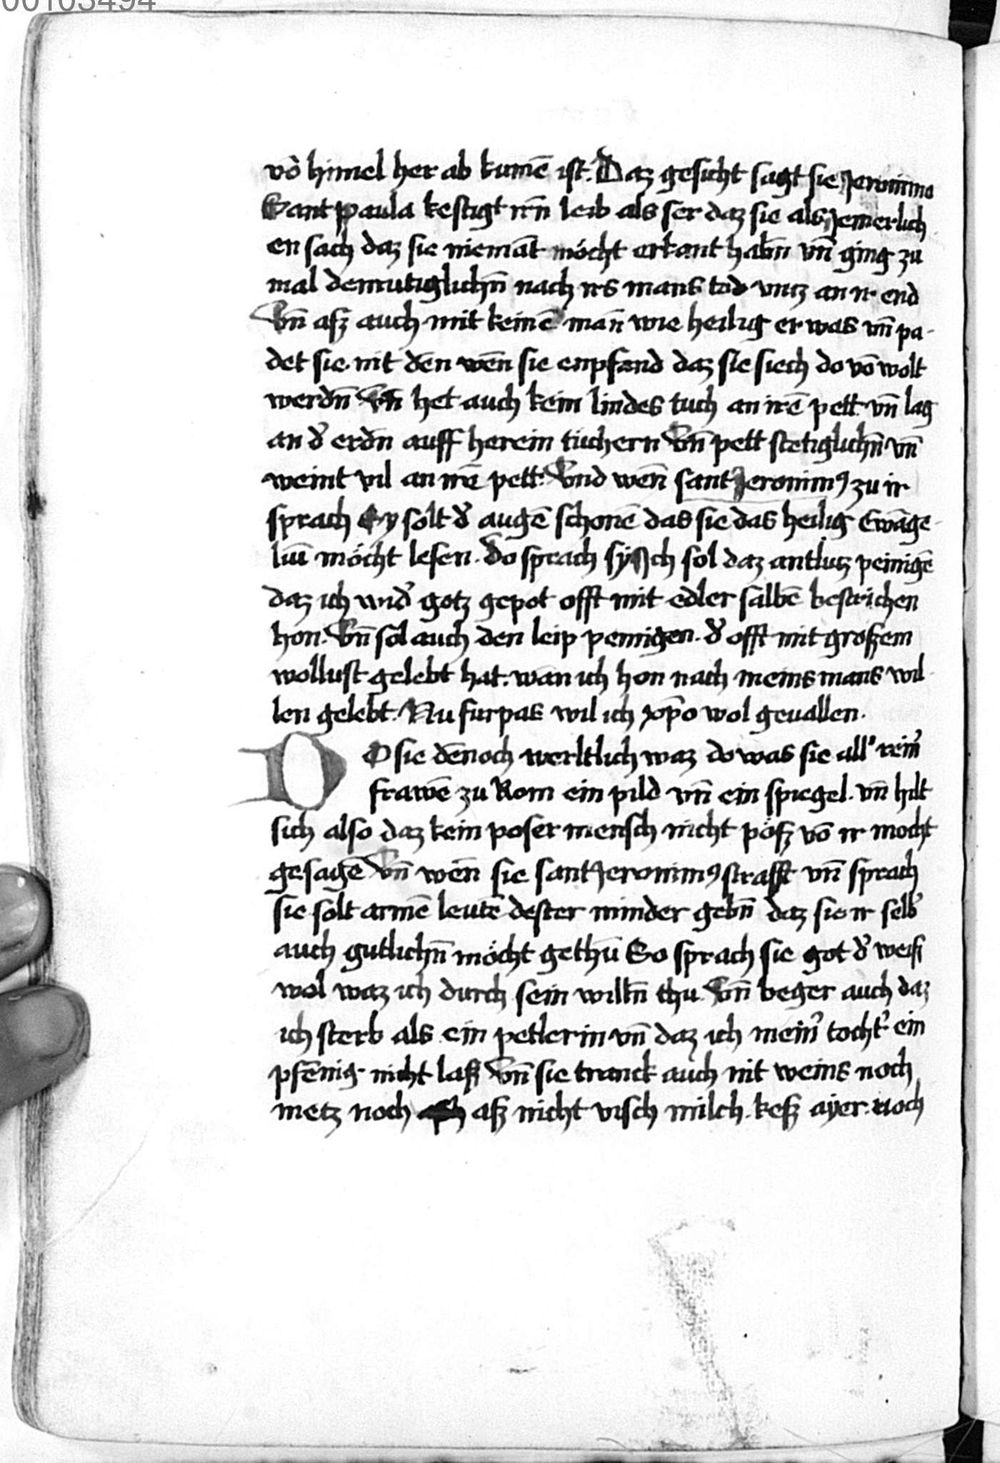 00103494
vō himel her ab kumē ist. Daz gesicht sagt sie Jeronimo
Sant paula kestigt irn̄ leib als ser daz sie als Jemerlich
en sach daz sie niemāt möcht erkant habn̄ vn̄ ging zu
mal demutiglichn̄ nach irs mans tod vntz an ir end
Vn̄ asz auch mit keinē man̄ wie heilig er was vn̄ pa-
det sie nit den wen̄ sie enpfand daz sie siech do vō wolt
werdn̄ Vn̄ het auch kein lindes tuch an irē pett vn̄ lag
an d' erdn auff herein tüchern Vn̄ pett stetiglichn̄ vn̄
weint vil an irē pett. Vnd wen̄ sant Jeronimꝰ zu ir
sprach Sy solt d' augē schonē das sie das heilig Ewāge-
liū möcht lesen. Do sprach sy Jch sol daz antlutz peinigē
daz ich wid' gotz gepot offt mit edler salbē bestrichen
hon. Vn̄ sol auch den leip peinigen. d' offt mit großem
wollust gelebt hat. wan ich hon nach meins mans wil-
len gelebt. Nu furpas wil ich xp̄o wol geuallen.
DO sie den̄och werltlich waz do was sie all' rein'
frawē zu Rom ein pild vn̄ ein spiegel. vn̄ hilt
sich also daz kein poser mensch nicht pösz vō ir mocht
gesagē Vn̄ wen̄ sie sant Jeronimꝰ strafft vn̄ sprach
sie solt armē leutē dester minder gebn̄ daz sie ir selb'
auch gutlichn̄ möcht gethū So sprach sie got d' weisz
wol waz ich durch sein willn̄ thu. Vn̄ beger auch daz
ich sterb als ein petlerin vn̄ daz ich mein' tocht' ein
pfēnig nicht lasz Vn̄ sie tranck auch nit weins noch
metz noch asz nicht visch milch. kesz ayer. noch